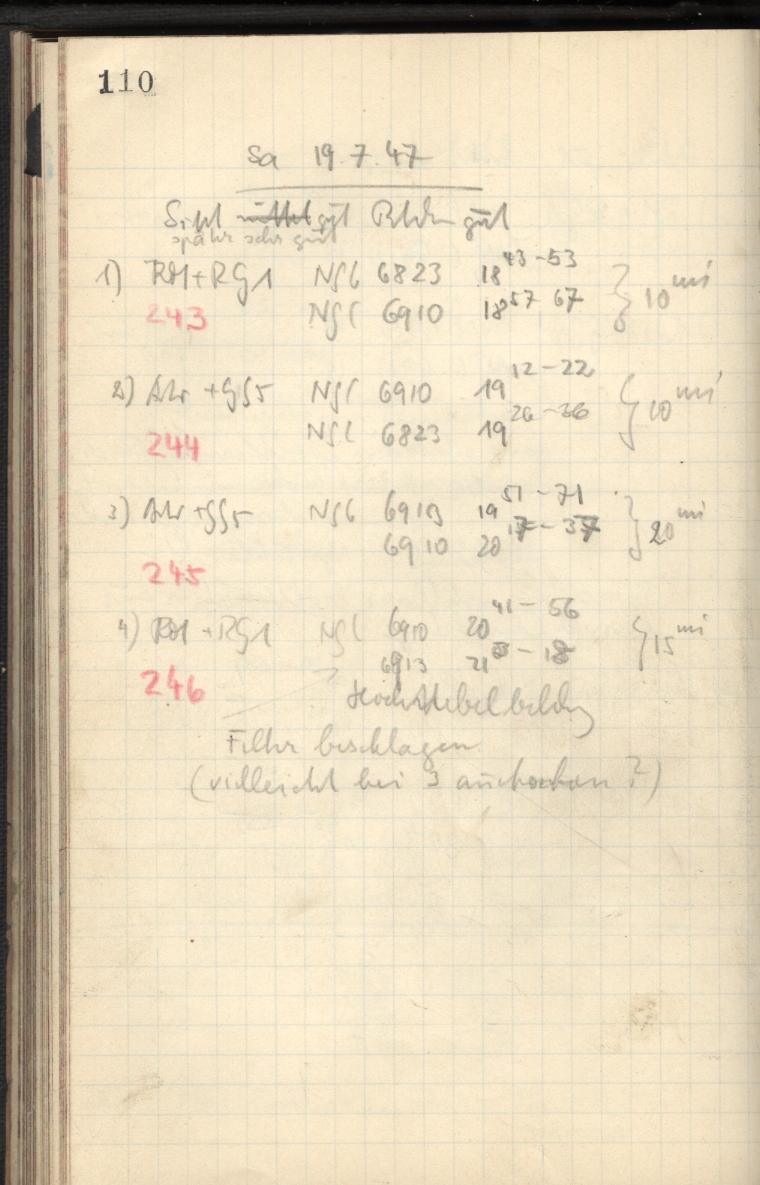 110
Sa 19.7.47
Sicht mittel gut Bilder gut
später sehr gut
1) RM+RG1 NGC 6823 18 43-53 } 10 mi
243 NGC 6910 18 57 67
2) +GG5 NGC 6910 19 12-22 } 10 mi
244 NGC 6823 19 26-36
3) +GG5 NGC 6913 19 51-71 } 20 mi
6910 20 17-37
245
4) +RG1 NGC 6910 20 41-56 } 15 mi
6913 21 3-18
246
Hochnebelbildg
Filter beschlagen
(vielleicht bei 3 auch schon?)